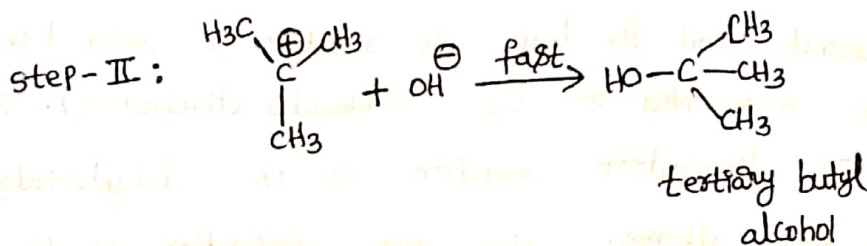 step-II: H3C ⊕ CH3 C CH3 + OH⊖ fast HO-C CH3 -CH3 CH3
tertiary butyl
alcohol